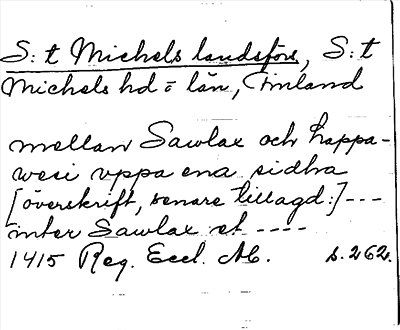 S:t Michels landsförs, S:t
Michels hd o län, Finland
mellan Sawlax och happa-
wesi vppa ena sidha
[överskrift, senare tillagd:] ---
inter Sawlax et ----
1415 Reg. Eccl. Ab. s. 262.